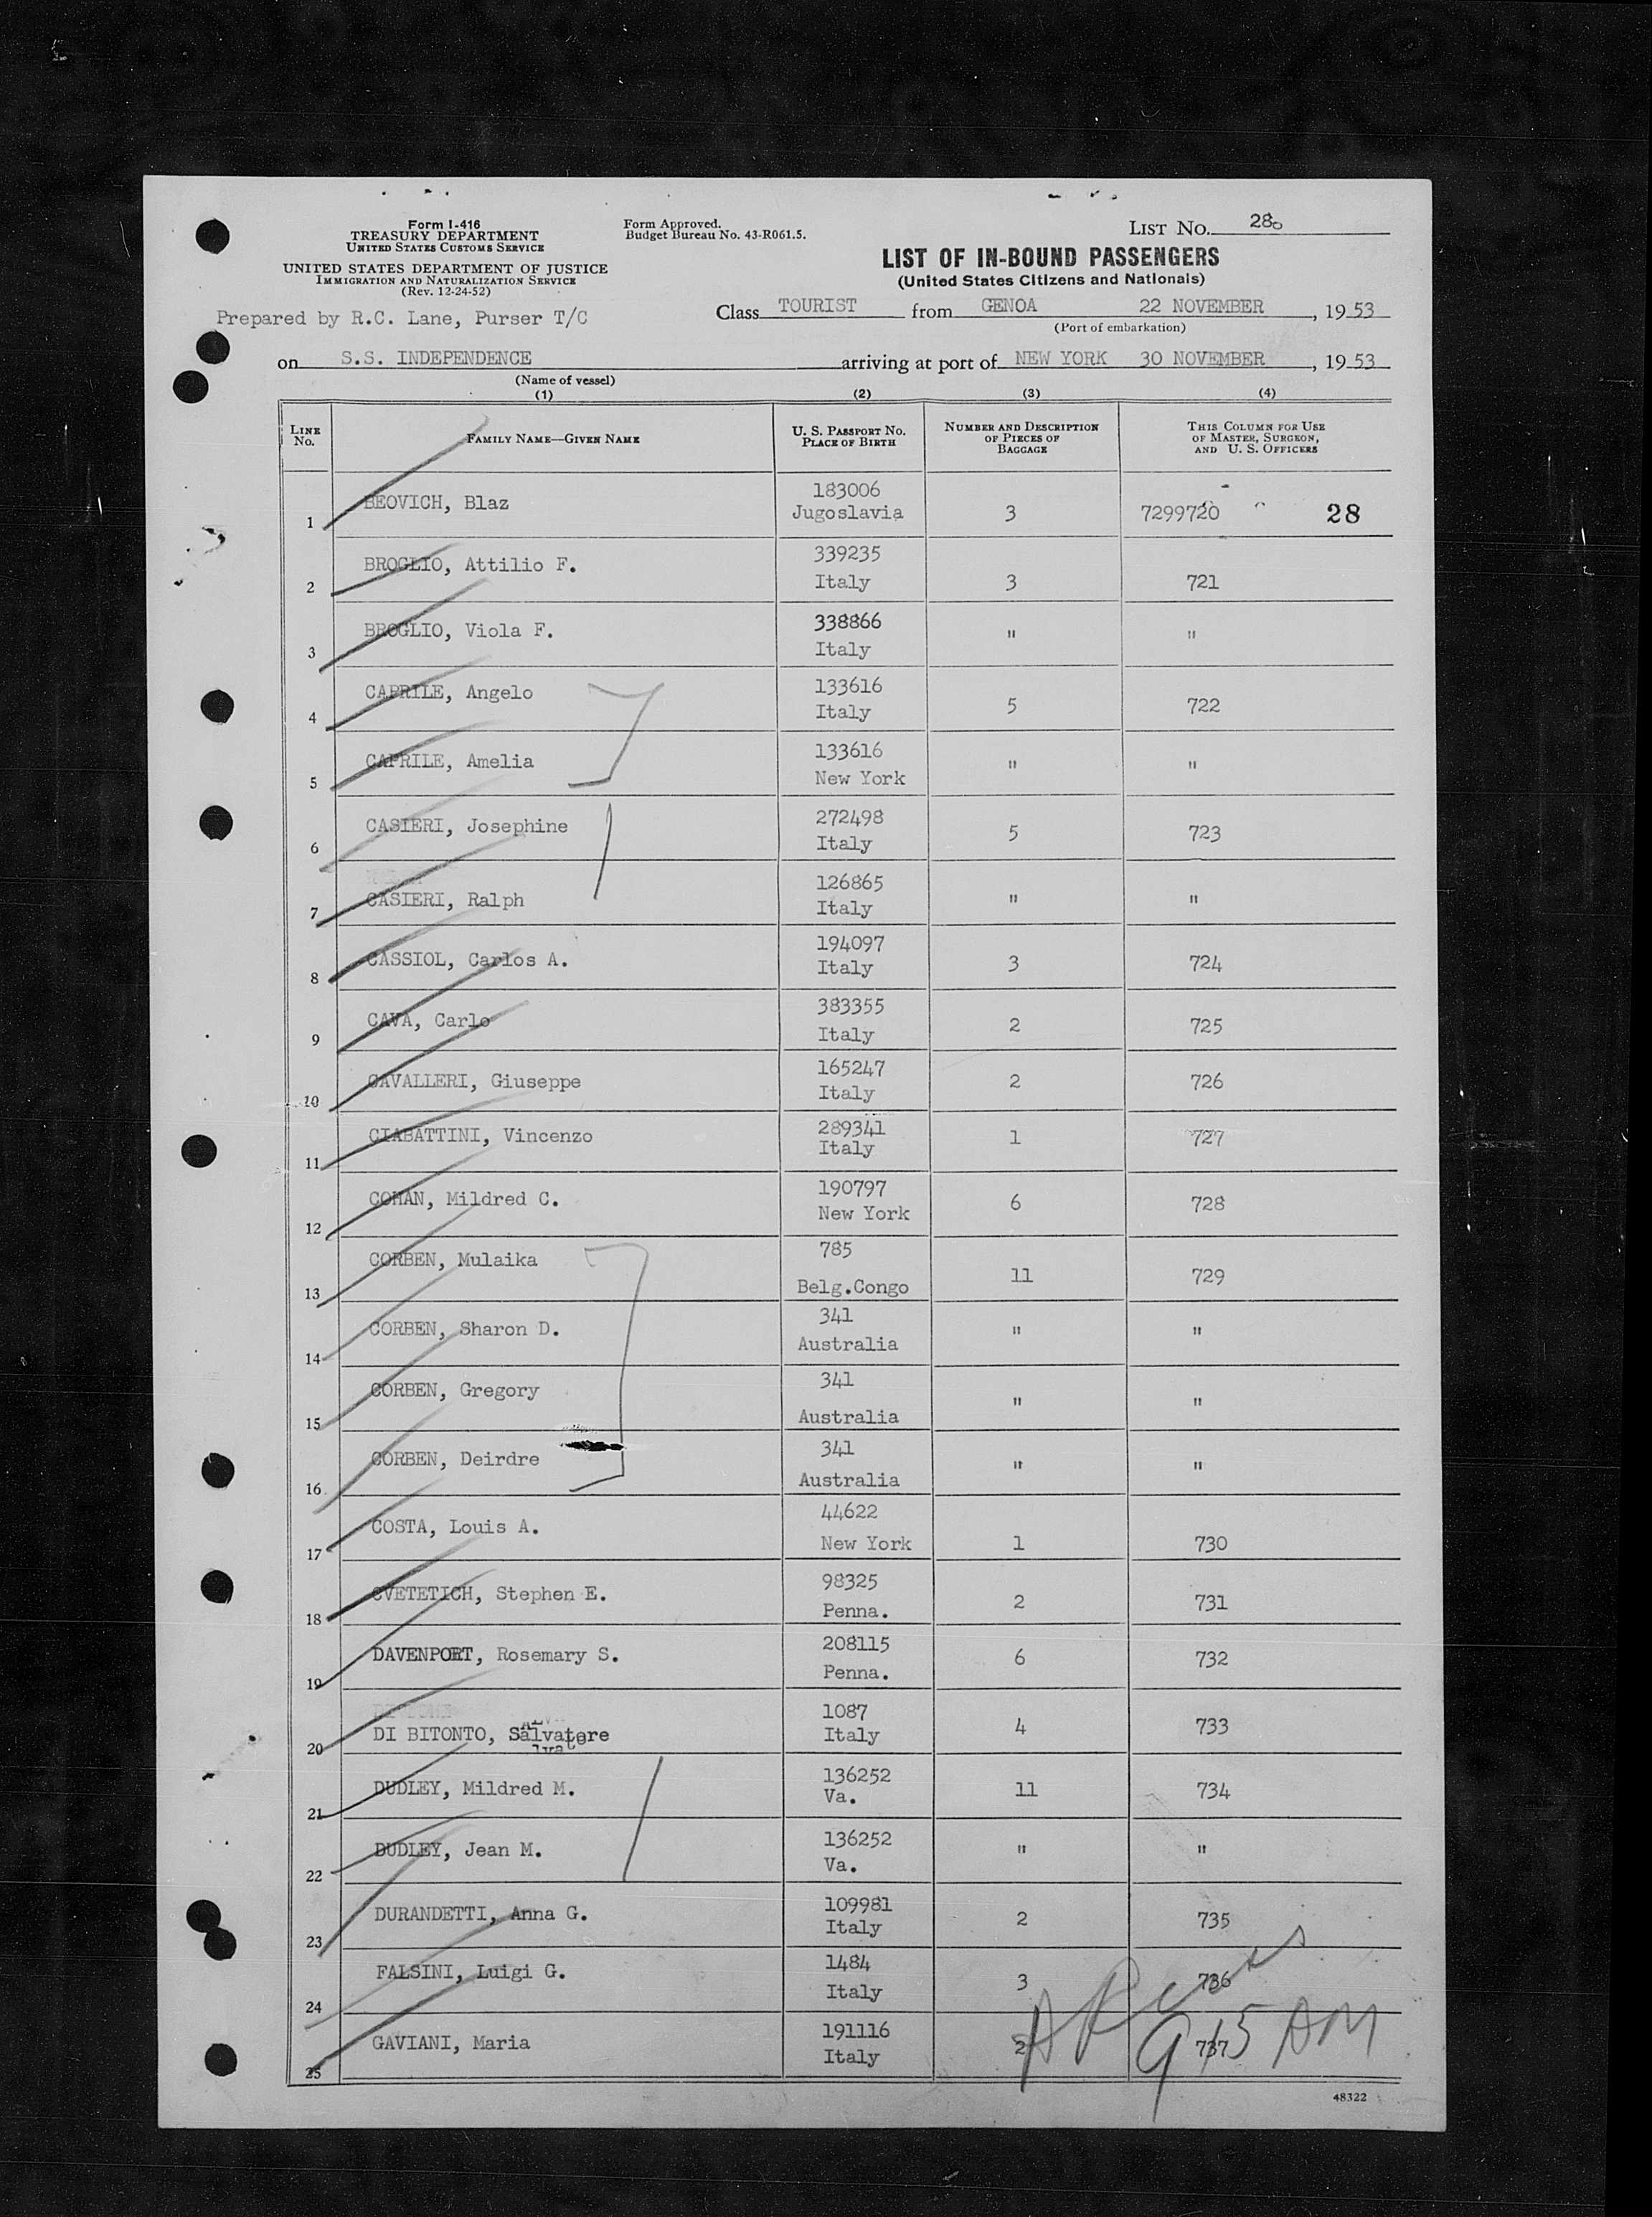 Form I-416
TREASURY DEPARTMENT
UNITED STATES CUSTOMS SERVICE
UNITED STATES DEPARTMENT OF JUSTICE
IMMIGRATION AND NATURALIZATION SERVICE
(Rev. 12-24-52)
Prepared by R.C. Lane, Purser T/C
Form Approved.
Budget Bureau No. 43-R061.5.
LIST NO. 28
LIST OF IN-BOUND PASSENGERS
(United States Citizens and Nationals)
Class TOURIST from GENOA 22 NOVEMBER, 1953
(Port of embarkation)
on S.S. INDEPENDENCE arriving at port of NEW YORK 30 NOVEMBER, 1953
(Name of vessel)
(1) (2) (3) (4)
LINE NO. FAMILY NAME—GIVEN NAME U. S. PASSPORT NO. PLACE OF BIRTH NUMBER AND DESCRIPTION OF PIECES OF BAGGAGE THIS COLUMN FOR USE OF MASTER, SURGEON, AND U. S. OFFICERS
1 BEOVICH, Blaz 183006 Jugoslavia 3 7299720 28
2 BROGLIO, Attilio F. 339235 Italy 3 721
3 BROGLIO, Viola F. 338866 Italy " "
4 CAPRILE, Angelo 133616 Italy 5 722
5 CAPRILE, Amelia 133616 New York " "
6 CASIERI, Josephine 272498 Italy 5 723
7 CASIERI, Ralph 126865 Italy " "
8 CASSIOL, Carlos A. 194097 Italy 3 724
9 CAVA, Carlo 383355 Italy 2 725
10 CAVALLERI, Giuseppe 165247 Italy 2 726
11 CIABATTINI, Vincenzo 289341 Italy 1 727
12 COHAN, Mildred C. 190797 New York 6 728
13 CORBEN, Mulaika 785 Belg.Congo 11 729
14 CORBEN, Sharon D. 341 Australia " "
15 CORBEN, Gregory 341 Australia " "
16 CORBEN, Deirdre 341 Australia " "
17 COSTA, Louis A. 44622 New York 1 730
18 CVETETICH, Stephen E. 98325 Penna. 2 731
19 DAVENPORT, Rosemary S. 208115 Penna. 6 732
20 DI BITONTO, Salvatore 1087 Italy 4 733
21 DUDLEY, Mildred M. 136252 Va. 11 734
22 DUDLEY, Jean M. 136252 Va. " "
23 DURANDETTI, Anna G. 109981 Italy 2 735
24 FALSINI, Luigi G. 1484 Italy 3 736
25 GAVIANI, Maria 191116 Italy 2 737
9 15 AM
48322